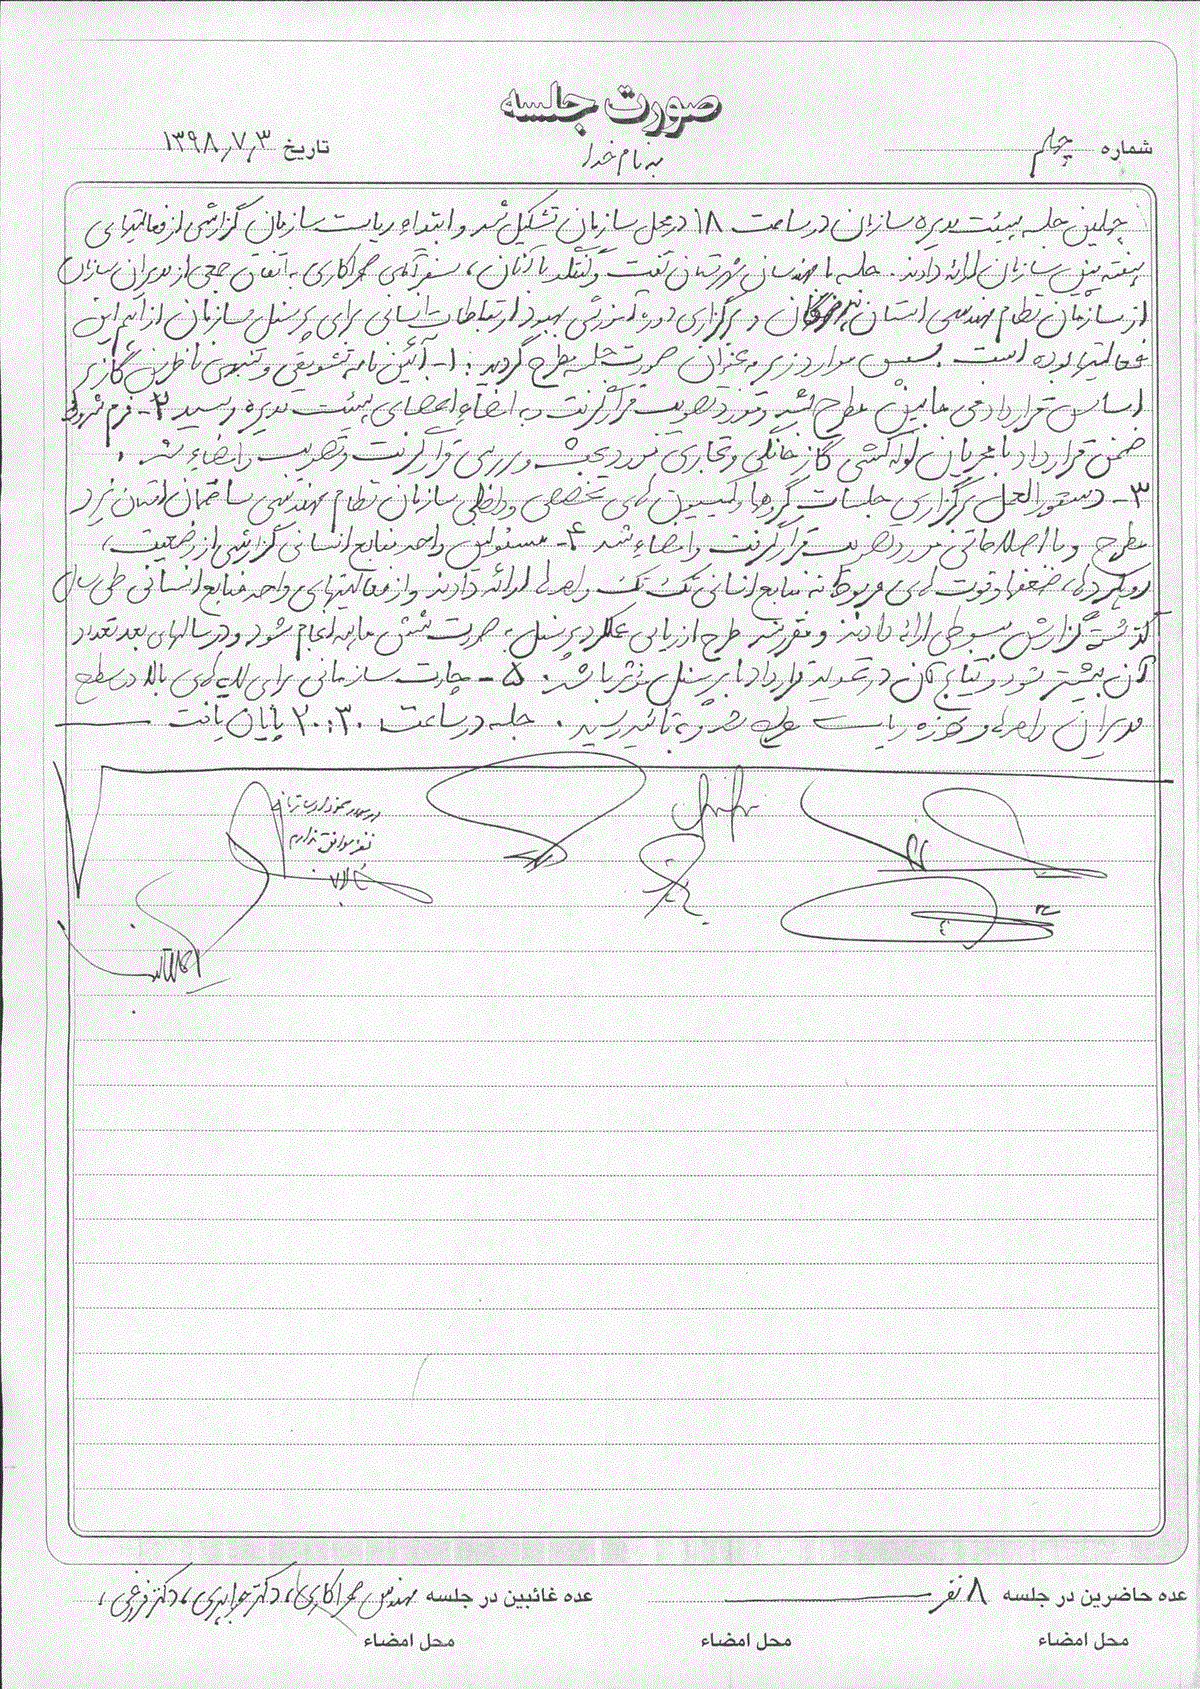 صورت جلسه
شماره چهلم
به نام خدا
تاریخ ۱۳۹۸٫۷٫۳
چهلمین جلسه هیئت مدیره سازمان در ساعت ۱۸ در محل سازمان تشکیل شد و ابتداء ریاست سازمان گزارشی از فعالیتهای
هفته پیش سازمان ارائه دادند. جلسه با مهندسان شهرستان تفت و گفتگو با آنان، سفر آقای صحراکاری به اتفاق جمعی از مدیران سازمان
از سازمان نظام مهندسی استان هرمزگان و برگزاری دوره آموزشی بهبود ارتباطات انسانی برای پرسنل سازمان از اهم این
فعالیتها بوده است. سپس موارد زیر به عنوان صورت جلسه مطرح گردید: ۱- آئین نامه تشویقی و تنبیهی ناظرین گاز بر
اساس قرارداد فی مابین مطرح شد و مورد تصویب قرار گرفت و به امضاء اعضای هیئت مدیره رسید ۲- فرم شروط
ضمن قرارداد با مجریان لوله کشی گاز خانگی و تجاری مورد بحث و بررسی قرار گرفت و تصویب و امضاء شد.
۳- دستورالعمل برگزاری جلسات گروهها و کمیسیون های تخصصی و داخلی سازمان نظام مهندسی ساختمان استان یزد
مطرح و با اصلاحاتی مورد تصویب قرار گرفت و امضاء شد ۴- مسئولین واحد منابع انسانی گزارشی از وضعیت،
رویکردها، ضعفها و قوت های مربوط به منابع انسانی تک تک واحدها ارائه دادند و از فعالیتهای واحد منابع انسانی طی سال
گذشته گزارش مبسوطی ارائه دادند و مقرر شد طرح ارزیابی عملکرد پرسنل به صورت شش ماهه انجام شود و در سالهای بعد تعداد
آن بیشتر شود و نتایج آن در تمدید قرارداد با پرسنل مؤثر باشد. ۵- چارت سازمانی برای لایه های بالا در سطح
مدیران واحدها و حوزه ریاست مطرح شد و به تائید رسید. جلسه در ساعت ۲۰:۳۰ پایان یافت
موافق ندارم
عده حاضرین در جلسه ۸ نفر
عده غائبین در جلسه مهندس صحراکاری، دکتر جواهری، دکتر فرخی،
محل امضاء
محل امضاء
محل امضاء